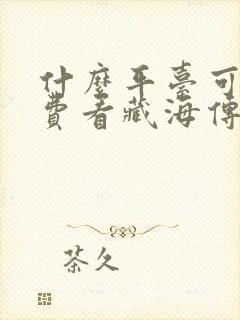 什麼平臺可
費看藏海傳
茶久